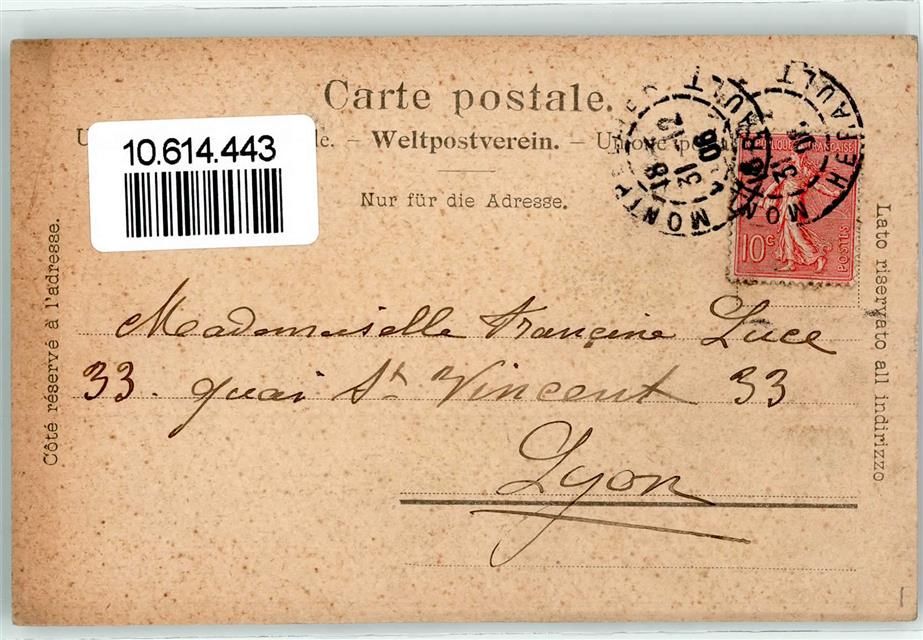 Carte postale.
10.614.443
Weltpostverein. –
Nur für die Adresse.
Côté réservé à l'adresse.
Lato riservato all indirizzo
HERAULT
MONTPELLIER
RÉPUBLIQUE FRANÇAISE
10c
POSTES
Mademoiselle Francine Luce
33. quai St Vincent 33
Lyon